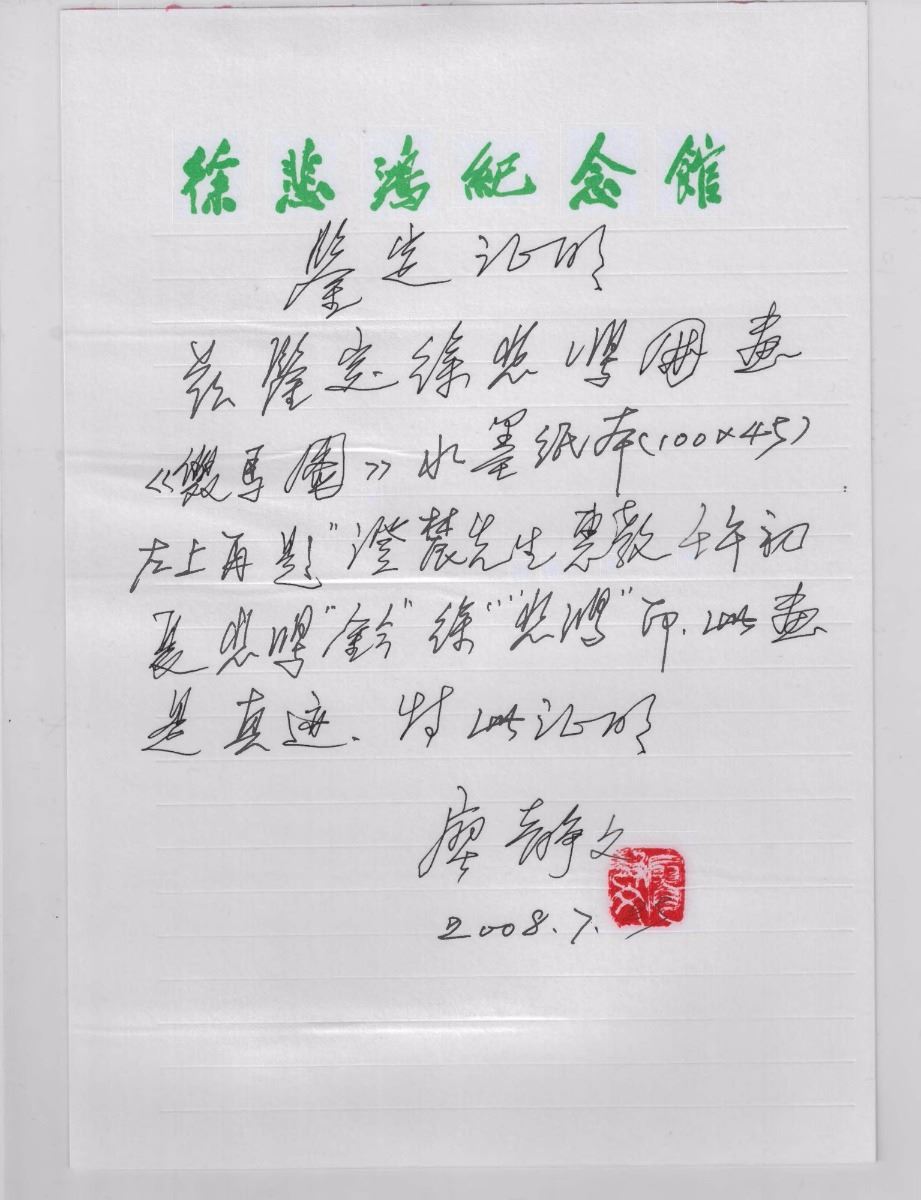 徐悲鸿紀念館
鉴定证明
兹鉴定徐悲鸿国画
《双马图》水墨纸本(100×45)
左上再题"澄农先生惠教 壬午初
夏 悲鸿"钤"徐""悲鸿"印.此画
是真迹.特此证明
廖静文
2008.7.